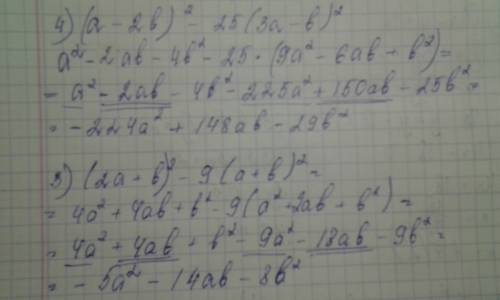 4) (a - 2b)² - 25(3a - b)²
a² - 2ab - 4b² - 25·(9a² - 6ab + b²) =
- a² - 2ab - 4b² - 225a² + 150ab - 25b² =
= - 224a² + 148ab - 29b²
3) (2a + b)² - 9(a + b)² =
= 4a² + 4ab + b² - 9(a² + 2ab + b²) =
= 4a² + 4ab + b² - 9a² - 18ab - 9b² =
= - 5a² - 14ab - 8b²